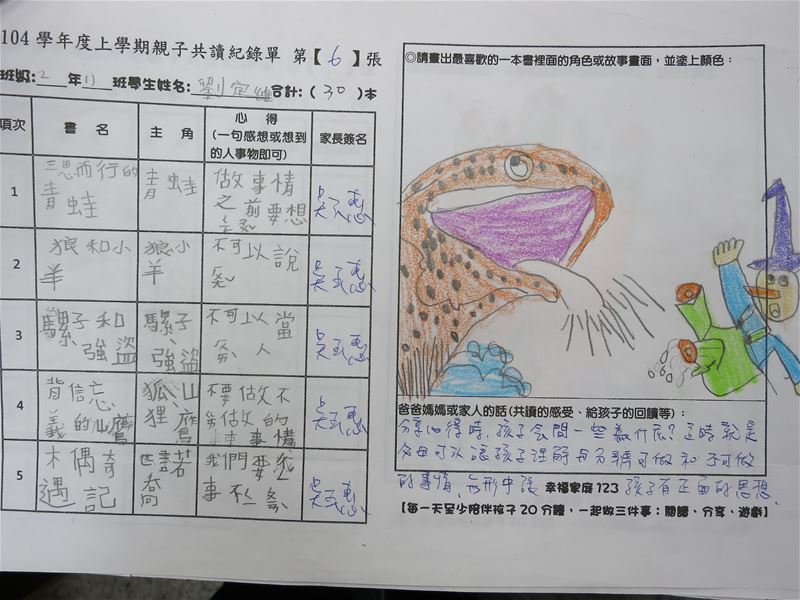 104 學年度上學期親子共讀紀錄單 第【6】張
班級:2 年11 班學生姓名: 劉定 合計:( 30 )本
項次 書 名 主 角 心 得 (一句感想或想到的人事物即可) 家長簽名
1 三思而行的青蛙 青蛙 做事情之前要想
2 狼和小羊 狼小羊 不可以說
3 騾子和強盜 騾子、強盜 不可以當 人
4 背信忘義的山鷹 狐狸、山鷹 不要做不 做的事情
5 木偶奇遇記 我們要 事不
◎請畫出最喜歡的一本書裡面的角色或故事畫面,並塗上顏色:
爸爸媽媽或家人的話(共讀的感受、給孩子的回饋等):
分享心得時,孩子會問一些為什麼?這時就是
父母可以讓孩子理解與分辨可做和不可做
的事情,無形中讓 幸福家庭 123 孩子有正面的思想.
【每一天至少陪伴孩子 20 分鐘,一起做三件事:閱讀、分享、遊戲】